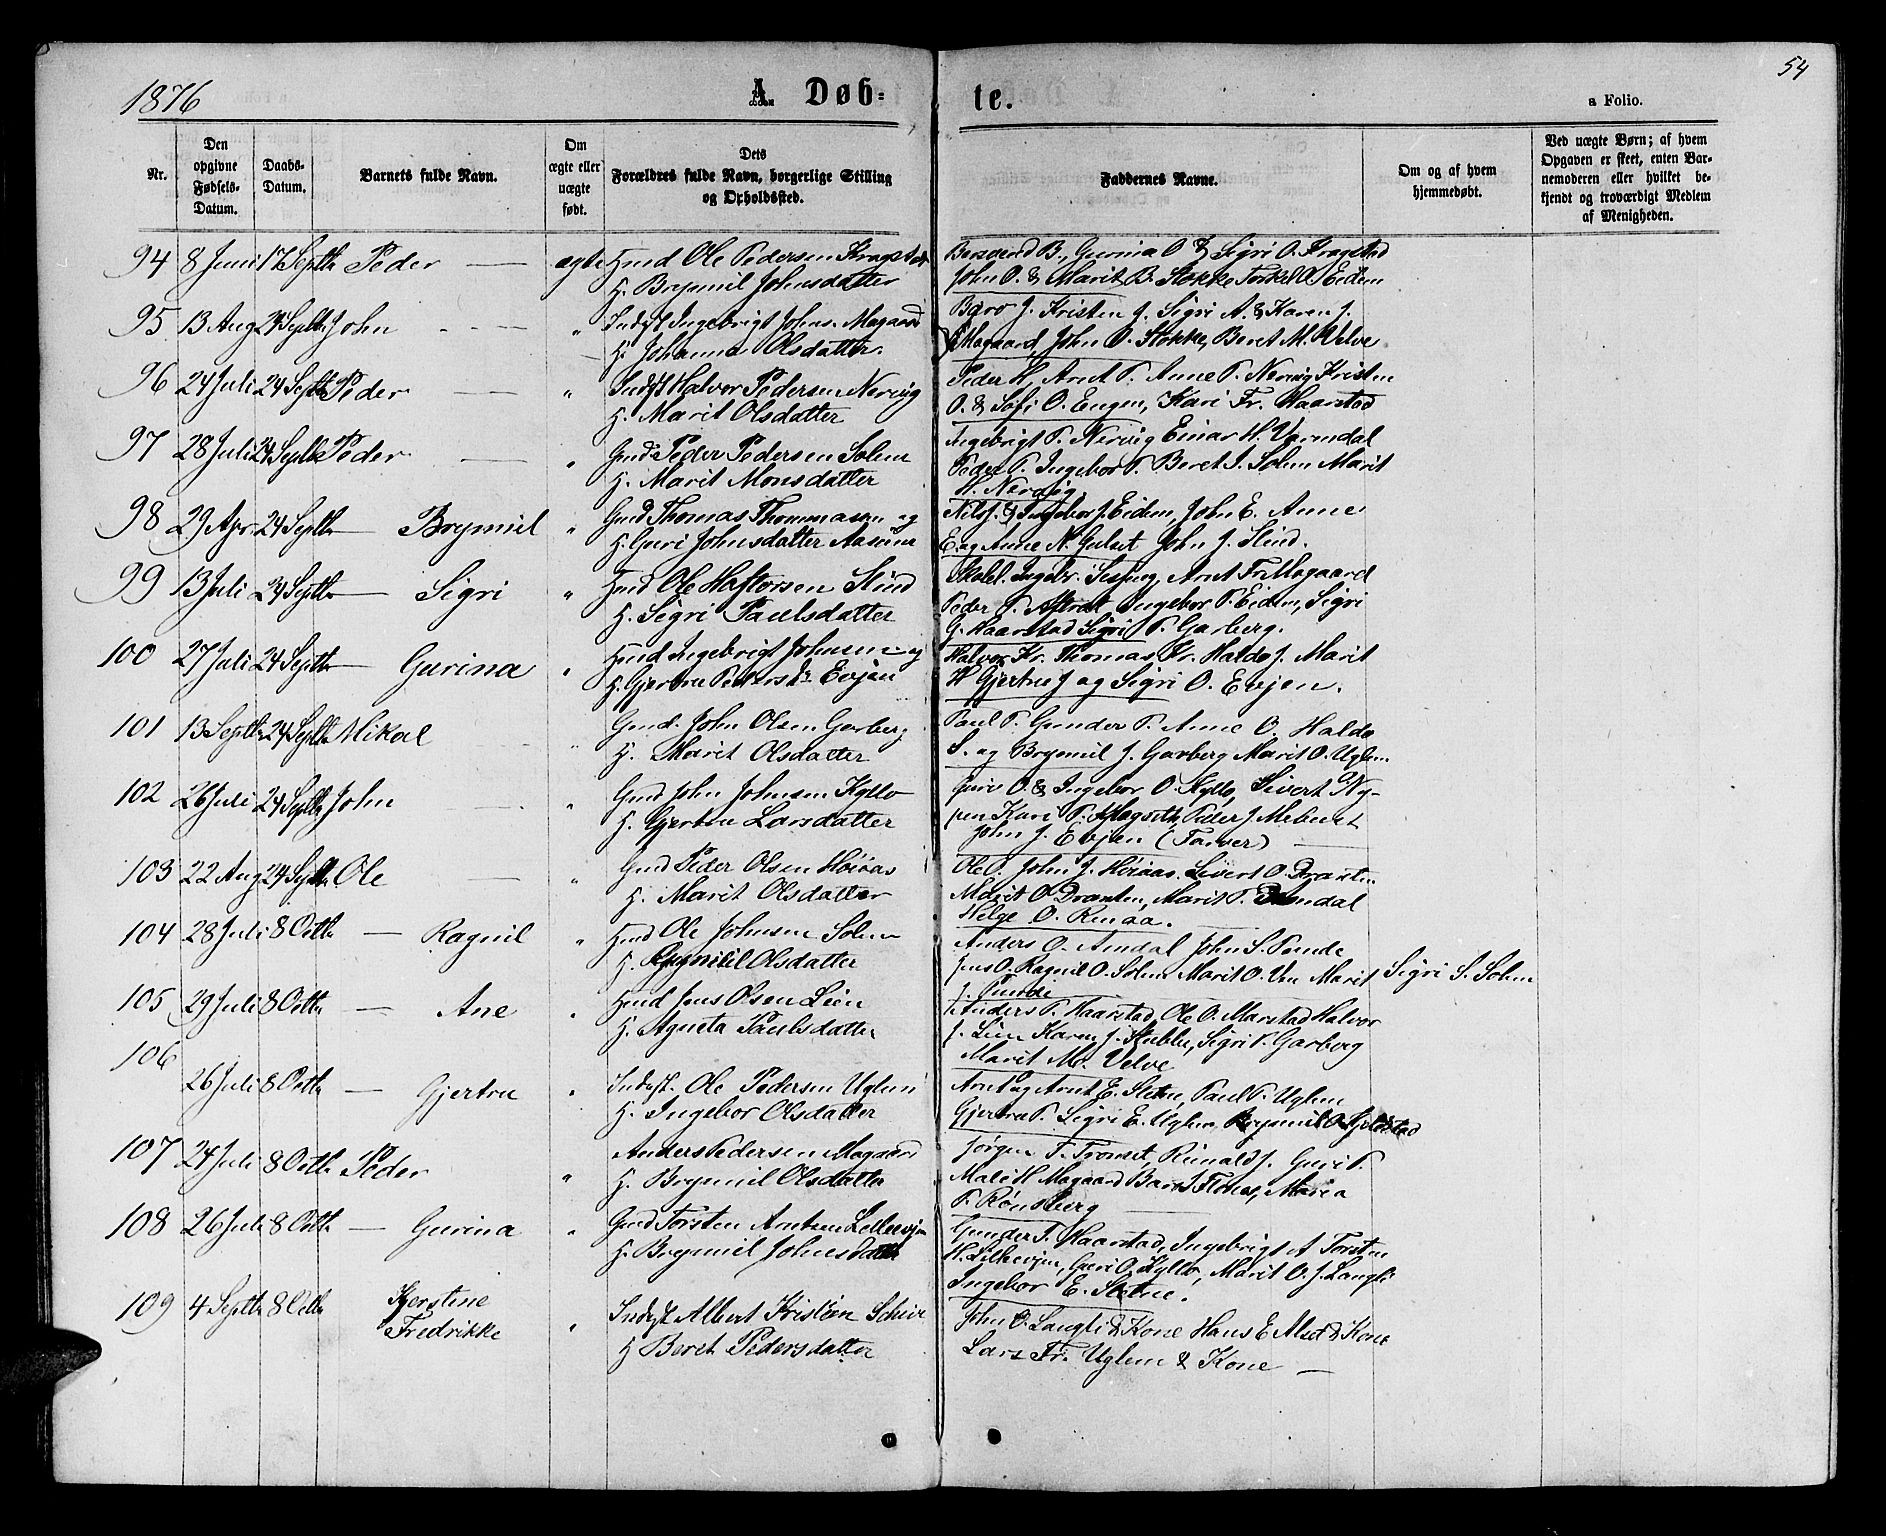 1876
A. Døb=
te.
a Folio.
54
Nr.
Den opgivne Fødsels-Datum.
Daabs-Datum.
Barnets fulde Navn.
Om ægte eller uægte født.
Dets Forældres fulde Navn, borgerlige Stilling og Opholdssted.
Faddernes Navne.
Om og af hvem hjemmedøbt.
Ved uægte Børn; af hvem Opgaven er skeet, enten Barnemoderen eller hvilket bekjendt og troværdigt Medlem af Menigheden.
94 8 Juni 17 Septbr Peder — ægte Hmd Ole Pedersen Kragstad
H. Brynnil Johnsdatter
B., Gurina O & Sigri O. Kragstad
John O. & Marit B. Stokke Torkel O Eidem
95 13 Aug 24 Septbr John — " Indst Ingebrigt Johns. Mogaard
H. Johanna Olsdatter.
Baro J. Kristen J. Sigri A. & Karen J.
Mogaard, John O. Stokke, Beret M. Velve
96 24 Juli 24 Septbr Peder — " Indst Halvor Pedersen Nervig
H. Marit Olsdatter
Peder H, Arnt P. Anne P. Nervig Kristen
O. & Sofi O. Engen, Kari Fr. Haarstad
97 28 Juli 24 Septbr Peder — " Gmd Peder Pedersen Solem
H. Marit Monsdatter
Ingebrigt P. Nervig Einar H. Varmdal
Peder P. Ingebor P. Beret J. Solem Marit
H. Nervig.
98 29 Apr. 24 Septbr — Brynnil " Gmd Thomas Thommasen og
H. Guri Johnsdatter Aasume
Nils J. & Ingebor J. Eidem, John E. Anne
E. og Anne N. Gulset John J. Slind.
99 13 Juli 24 Septbr — Sigri " Hmd Ole Haftorsen Slind
H. Sigri Paulsdatter
Skolel. Ingebr. Sesseng, Arnt Fr. Mogaard
Peder P. Aftret Ingebor P. Eidem, Sigri
G. Haarstad Sigri P. Garberg.
100 27 Juli 24 Septbr — Gurina " Hmd Ingebrigt Johnsen og
H. Gjertru Pedersdr Evjen
Halvor Kr. Thomas Kr. Haldo J. Marit
H Gjertru J og Sigri O. Evjen.
101 13 Septbr 24 Septbr Mikal " Gmd. John Olsen Garberg
H. Marit Olsdatter
Paul P. Gunder P. Anne O. Haldo
S. og Brynnil J. Garberg Marit O. Uglem
102 26 Juli 24 Septbr John — " Gmd John Johnsen Kyllo
H. Gjertru Larsdatter
Guri O. & Ingebor O. Kyllo, Sivert Ny-
pen Kari P. Mogseth, Peder J Mebust
John J. Evjen (Farver) —
103 22 Aug 24 Septbr Ole — " Gmd Peder Olsen Høiaas
H. Marit Olsdatter
Ole O. John J. Høiaas. Sivert O. Draxten
Marit O. Draxten, Marit P.
Helge O. Rinaa.
104 28 Juli 8 Octbr — Ragnil " Hmd Ole Johnsen Solem
H. Olsdatter
Anders O. Amdal John S. Punde
Jens O. Ragnil O. Solem Marit O. Marit Sigri S. Solem
J. Punde
105 29 Juli 8 Octbr — Ane " Hmd Jens Olsen Lien
H. Agneta Paulsdatter
Anders P. Haarstad, Ole O. Marstad Halvor
J. Lien Karen J. Stubbe, Sigri P. Garberg
Marit M. Velve
106 26 Juli 8 Octbr — Gjertru " Indst. Ole Pedersen Uglem
H. Ingebor Olsdatter
Arnt og Arnt E. Sletne, Paul P. Uglem
Gjertru P. Sigri E. Uglem, Brynnil O.
107 24 Juli 8 Octbr Peder " Anders Pedersen Mogaard
H. Brynnil Olsdatter
Jørgen F. Tromset, Rinald J. Guri P.
Mali H Mogaard Baro J Flønes, Maria
P. Rønsberg —
108 26 Juli 8 Octbr — Gurina " Gmd Torsten Arntsen Lillevjen
H. Brynnil Johnsdatter
Gunder T. Haarstad, Ingebrigt A Torsten
H. Lillevjen, Guri O. Kyllo, Marit O. J. Langli
Ingebor E. Sletne.
109 4 Septbr 8 Octbr Kjerstine
Fredrikke " Indst Albert Kristian Scheve
H Beret Pedersdatter
John O. Langli & Kone Hans E Alset & Kone
Lars Fr. Uglem & Kone —